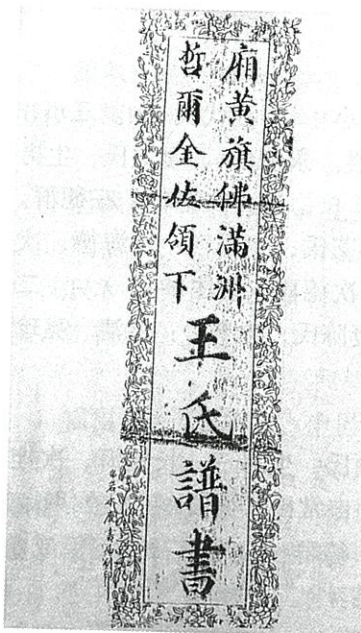 廂黃旗佛滿洲
哲爾金佐領下
王氏譜書